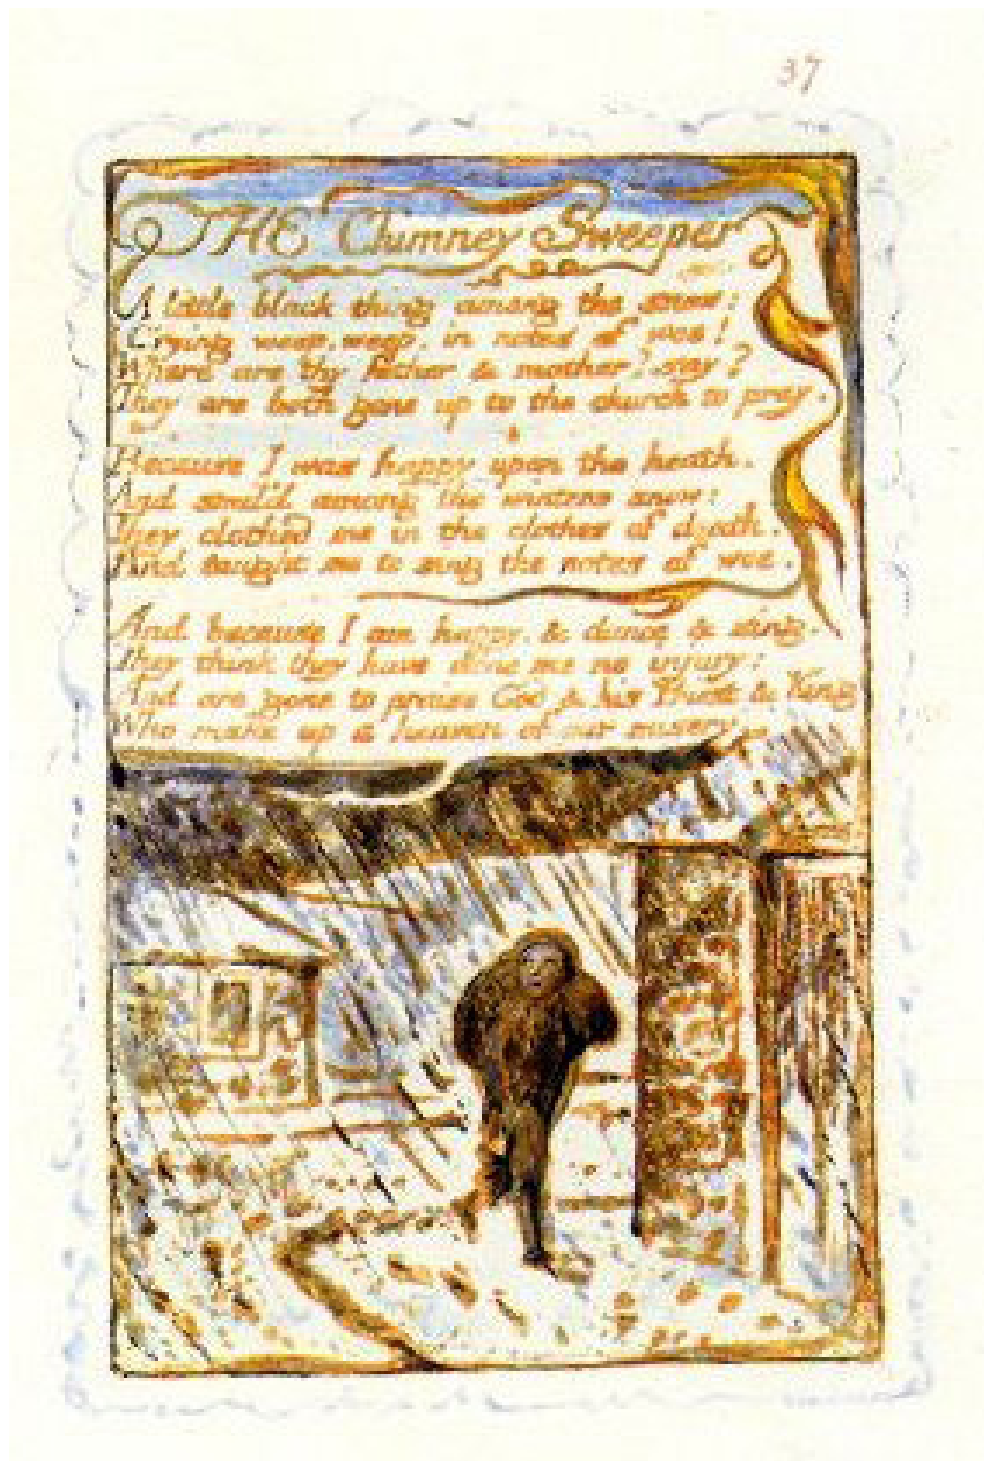 37
THE Chimney Sweeper
A little black thing among the snow:
Crying weep, weep, in notes of woe!
Where are thy father & mother? say?
They are both gone up to the church to pray.
Because I was happy upon the heath.
And smil'd among the winters snow:
They clothed me in the clothes of death.
And taught me to sing the notes of woe.
And because I am happy, & dance & sing.
They think they have done me no injury:
And are gone to praise God & his Priest & King
Who make up a heaven of our misery.